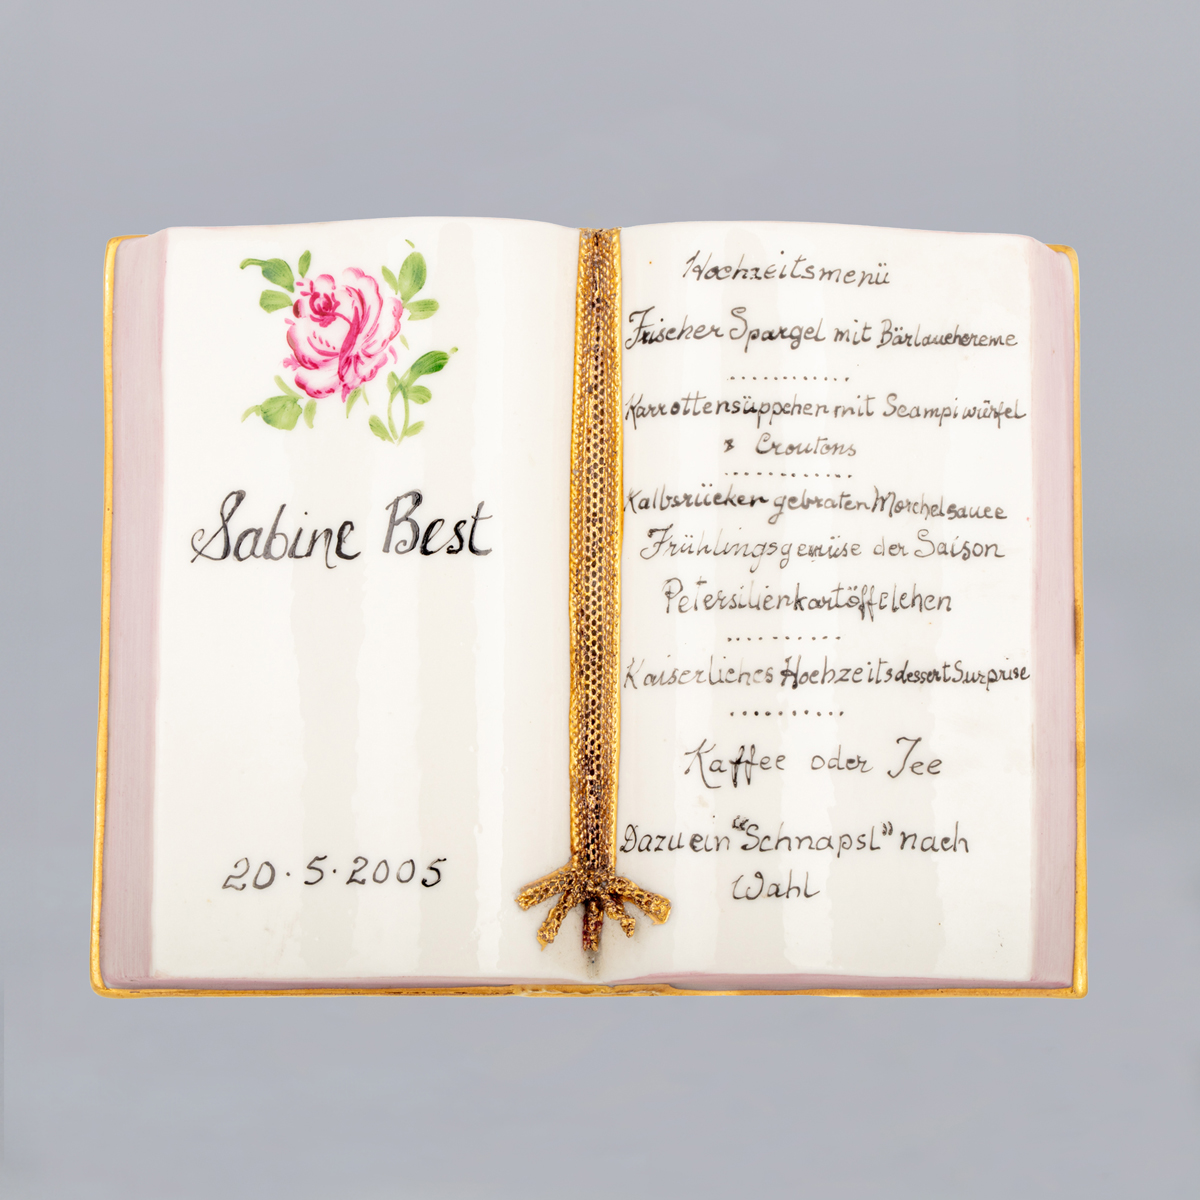 Sabine Best
20.5.2005
Hochzeitsmenü
Frischer Spargel mit Bärlauchcreme
............
Karrottensüppchen mit Scampiwürfel
& Croutons
.............
Kalbsrücken gebraten Morchelsauce
Frühlingsgemüse der Saison
Petersilienkartöffelchen
...........
Kaiserliches Hochzeitsdessert Surprise
...........
Kaffee oder Tee
Dazu ein "Schnapsl" nach
Wahl